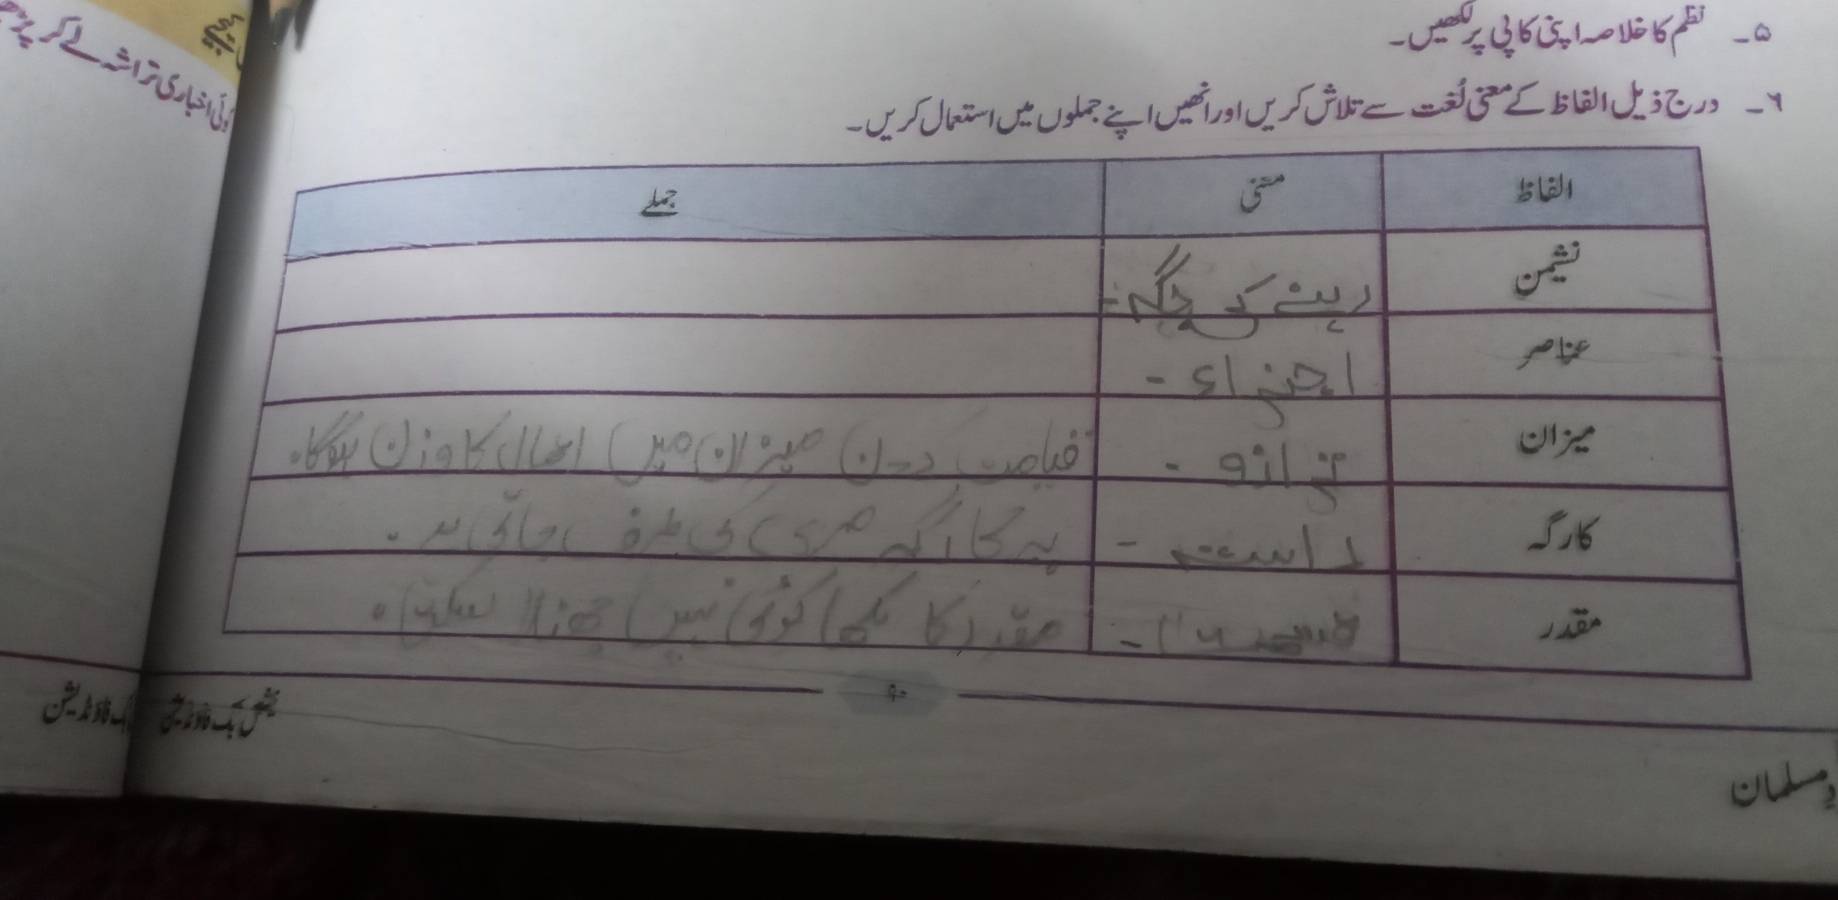 کوئی اخباری تراشہ لے کر
۵۔ نظم کا خلاصہ اپنی کاپی پر لکھیں۔
۶۔ درج ذیل الفاظ کے معنی لُغت سے تلاش کریں اور انھیں اپنے جملوں میں استعمال کریں۔
الفاظ معنی جملے
نشیمن رہنے کی جگہ۔
عناصر اجزاء۔
میزان ترازو۔ قیامت دن میزان میں اعمال کا وزن ہوگا۔
کارگہ راستہ۔ یہ کارگہ مری کی طرف جاتی ہے۔
مقدر قسمت۔ مقدر کا لکھا کوئی نہیں
۹۰
نیشنل بک فاؤنڈیشن
بک فاؤنڈیشن
مسلمان